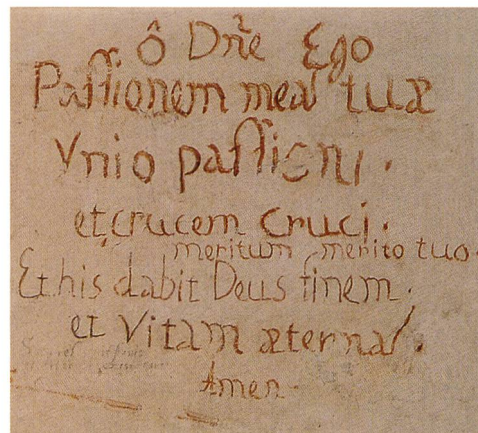 Ô Dn̄e Ego
Paſſionem meā tuæ
Vnio paſſioni.
et crucem Cruci.
meritum merito tuo.
Et his dabit Deus finem.
et Vitam æternā.
Amen.